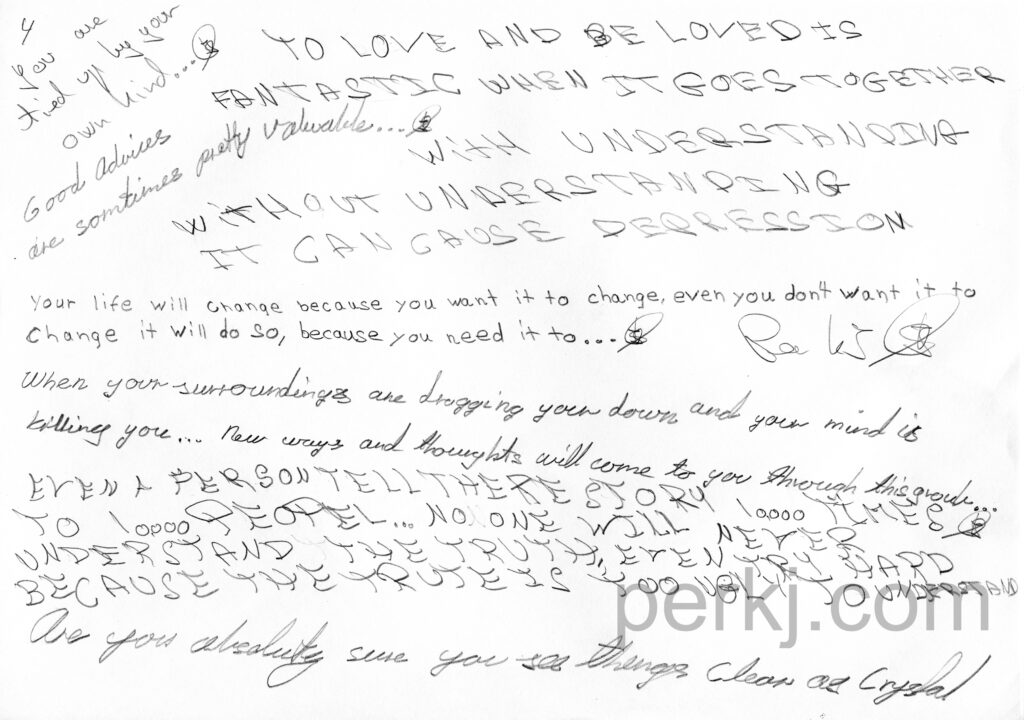 4
You are
tied up by your
own kind...
Good Advices
are somtimes pretty valuable...
TO LOVE AND BE LOVED IS
FANTASTIC WHEN IT GOES TOGETHER
WITH UNDERSTANDING
WITHOUT UNDERSTANDING
IT CAN CAUSE DEPRESSION
Your life will change because you want it to change, even you don't want it to
change it will do so, because you need it to...
When your surroundings are dragging your down and your mind is
killing you... New ways and thoughts will come to you through this
EVEN A PERSON TELL THERE STORY 10000 TIMES
TO 10000 PEOPEL... NO ONE WILL NEVER
UNDERSTAND THE TRUTH, EVEN TRY HARD
BECAUSE THE TRUTE IS TOO TO UNDERSTAND
perkj.com
Are you absoluty sure you see things Clear as Crystal